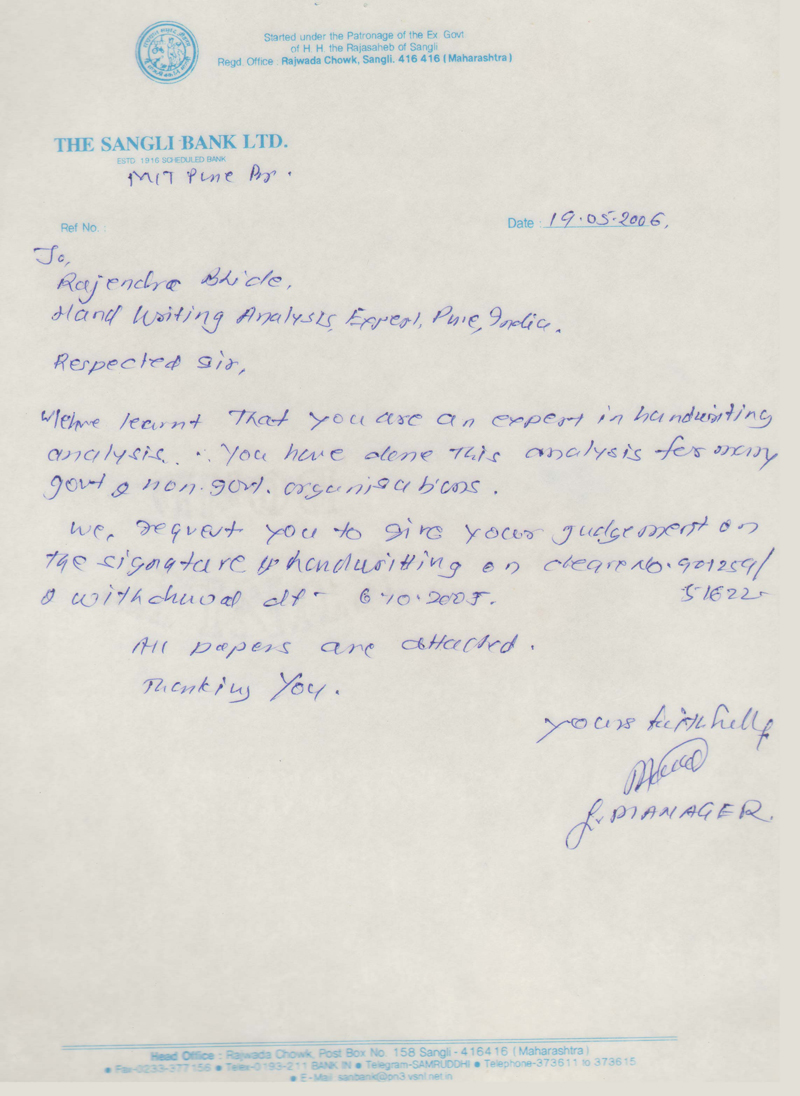 Started under the Patronage of the Ex Govt
of H. H. the Rajasaheb of Sangli
Regd. Office : Rajwada Chowk, Sangli. 416 416 (Maharashtra)
THE SANGLI BANK LTD.
ESTD 1916 SCHEDULED BANK
MIT Pune Br.
Ref No. :
Date : 19.05.2006.
To,
Rajendra Bhide,
Hand Writing Analysis, Expert, Pune, India.
Respected Sir,
We have learnt That you are an expert in handwriting
analysis. You have done This analysis for many
govt & non.govt. organisations.
We, request you to give your judgement on
the signature & handwritting on cheque No. 901259/
51622
& withdrawal dt - 6.10.2005.
All papers are attached.
Thanking You.
Yours faithfully
MANAGER.
Head Office : Rajwada Chowk, Post Box No. 158 Sangli - 416416 (Maharashtra)
● Fax-0233-377156 ● Telex-0193-211 BANK IN ● Telegram-SAMRUDDHI ● Telephone-373611 to 373615
● E-Mail sanbank@pn3.vsnl.net.in